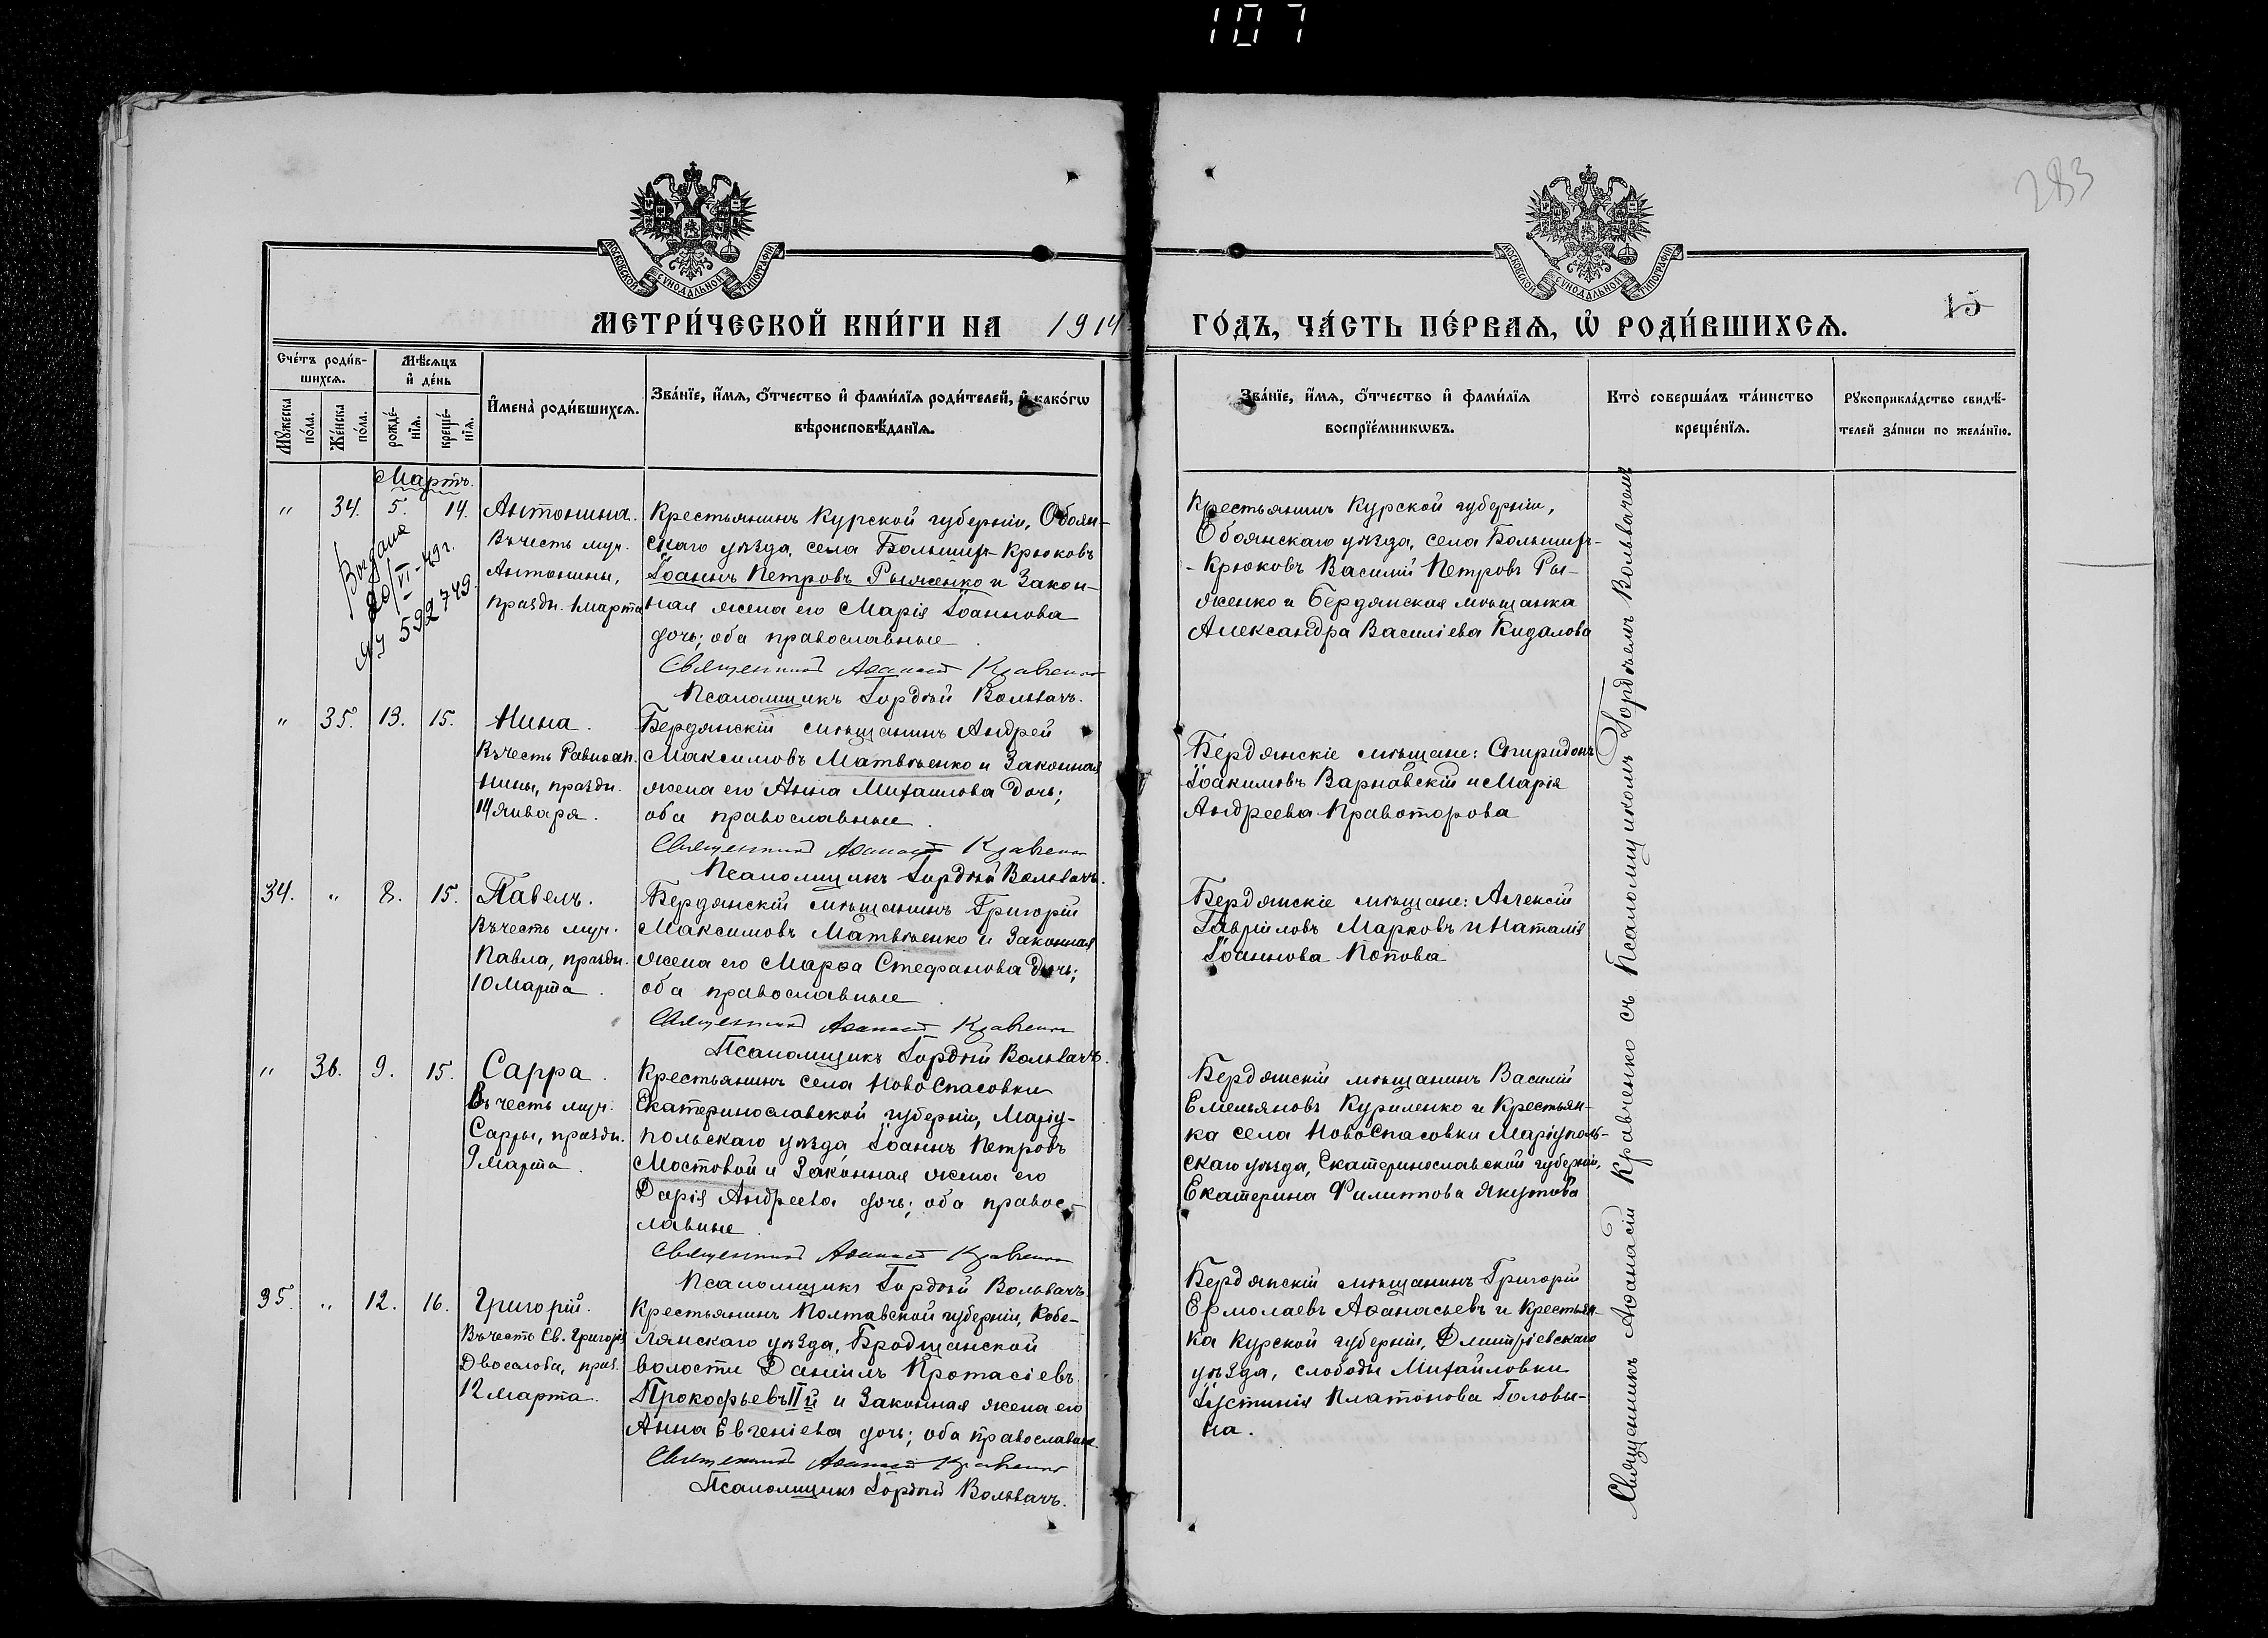 107
283
МОСКОВСКОЙ СУНОДАЛЬНОЙ ТИПОГРАФІИ
МОСКОВСКОЙ СУНОДАЛЬНОЙ ТИПОГРАФІИ
МЕТРИ́ЧЕСКОЙ КНИ́ГИ НА 1914
ГО́ДЪ, ЧА́СТЬ ПЕ́РВАѦ, Ѡ҆ РОДИ́ВШИХСѦ.
15
Сче́тъ роди́в-
шихсѧ.
Мꙋ́жеска
по́ла.
Же́нска
по́ла.
Мѣ́сѧцъ
и҆ де́нь
рожде́-
нїѧ.
креще́-
нїѧ.
И҆мена̀ роди́вшихсѧ.
Зва́нїе, и҆́мѧ, ѻ҆́тчество и҆ фами́лїѧ роди́телей, и҆ како́гѡ
вѣроисповѣ́данїѧ.
Зва́нїе, и҆́мѧ, ѻ҆́тчество и҆ фами́лїѧ
воспрїе́мникѡвъ.
Кто̀ соверша́лъ та́инство
креще́нїѧ.
Рꙋкоприкла́дство свидѣ́-
телей за́писи по жела́нїю.
Мартъ.
" 34. 5. 14. Антонина.
Въ честь муч.
Антонины,
праздн. 1 марта
Выдана
20/VI-49г.
ЯУ 592749
Крестьянинъ Курской губерніи, Обоян-
скаго уѣзда, села Большихъ-Крюковъ
Іоаннъ Петровъ Рыженко и Закон-
ная жена его Марія Іоаннова
дочь; оба православные.
Священникъ Аѳанасій Кравченко
Псаломщикъ Гордѣй Вольвачъ.
Крестьянинъ Курской губерніи,
Обоянскаго уѣзда, села Большихъ-
-Крюковъ Василій Петровъ Ры-
женко и Бердянская мѣщанка
Александра Василіева Кидалова
" 35. 13. 15. Нина.
Въ честь Равноап.
Нины, праздн.
14 января.
Бердянскій мѣщанинъ Андрей
Максимовъ Матвѣенко и Законная
жена его Анна Михаилова дочь;
оба православные.
Священникъ Аѳанасій Кравченко
Псаломщикъ Гордѣй Вольвачъ.
Бердянскіе мѣщане: Спиридонъ
Іоакимовъ Варнавскій и Марія
Андреева Правоторова
34. " 8. 15. Павелъ.
Въ честь муч.
Павла, праздн.
10 Марта.
Бердянскій мѣщанинъ Григорій
Максимовъ Матвѣенко и Законная
жена его Марѳа Стефанова дочь;
оба православные.
Священникъ Аѳанасій Кравченко
Псаломщикъ Гордѣй Вольвачъ.
Бердянскіе мѣщане: Алексій
Гавріиловъ Марковъ и Наталія
Іоаннова Попова
" 36. 9. 15. Сарра.
Въ честь муч.
Сарры, праздн.
9 марта.
Крестьянинъ села НовоСпасовки
Екатеринославской губерніи, Маріу-
польскаго уѣзда Іоаннъ Петровъ
Мостовой и Законная жена его
Дарія Андреева дочь; оба правос-
лавные.
Священникъ Аѳанасій Кравченко
Псаломщикъ Гордѣй Вольвачъ
Бердянскій мѣщанинъ Василій
Емельяновъ Куриленко и Крестьян-
ка села НовоСпасовки Маріуполь-
скаго уѣзда, Екатеринославской губерніи,
Екатерина Филиппова Якутова
35. " 12. 16. Григорій.
Въ честь Св. Григорія
Двоеслова, праз.
12 марта.
Крестьянинъ Полтавской губерніи, Кобе-
лякскаго уѣзда, Бродщанской
волости Даніилъ Протасіевъ
Прокофьевъ IIй и Законная жена его
Анна Евгеніева дочь; оба православные.
Священникъ Аѳанасій Кравченко
Псаломщикъ Гордѣй Вольвачъ.
Бердянскій мѣщанинъ Григорій
Ермолаевъ Аѳанасьевъ и Крестьян-
ка Курской губерніи, Дмитріевскаго
уѣзда, слободы Михайловки
Іустинія Платонова Головы-
на.
Священникъ Аѳанасій Кравченко съ Псаломщикомъ Гордѣемъ Вольвачемъ